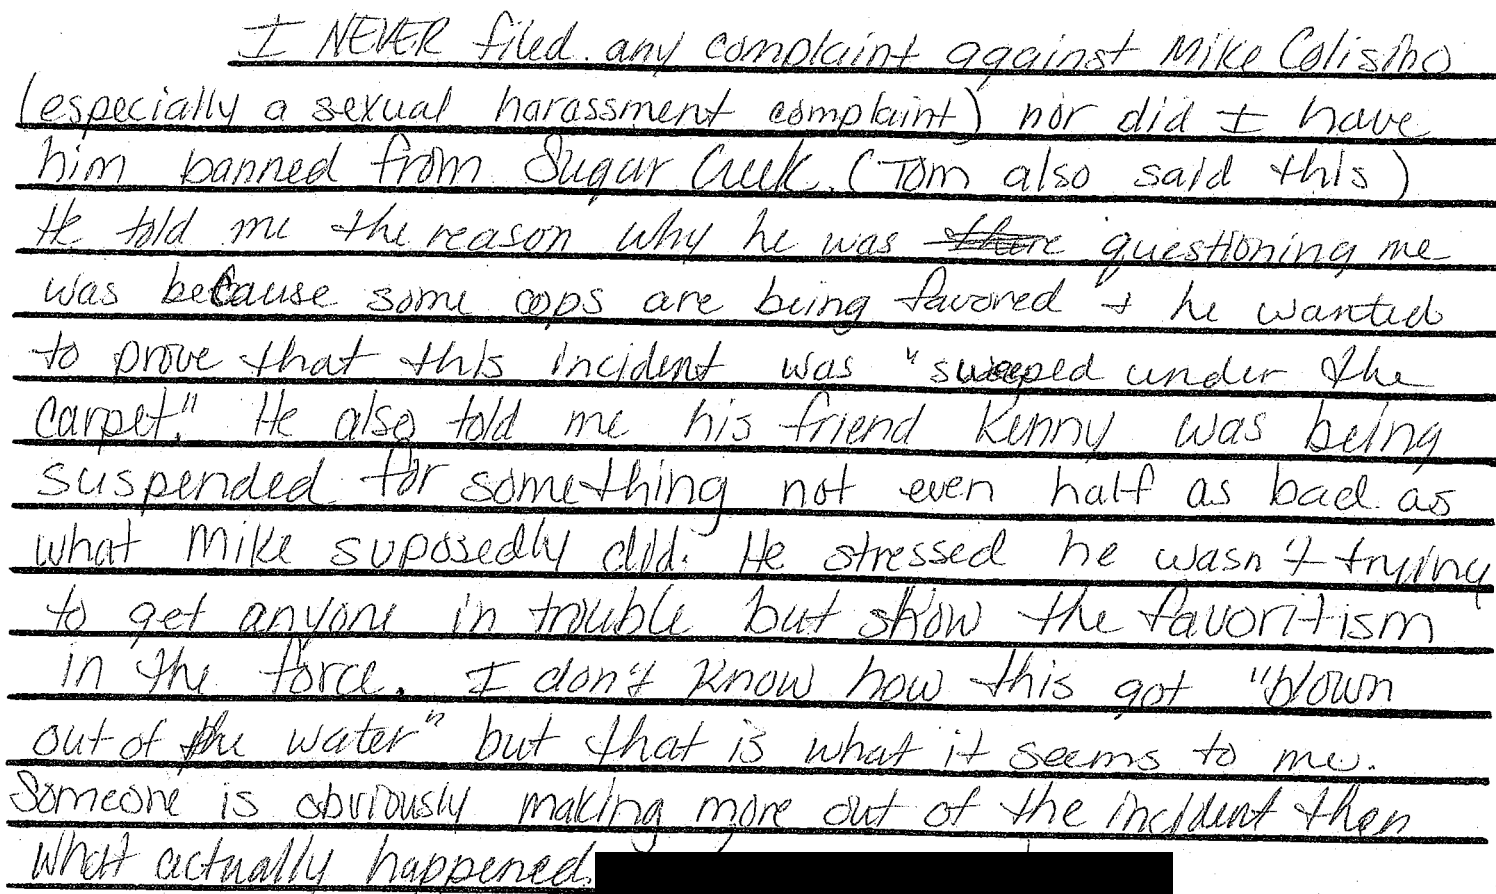 I NEVER filed any complaint against Mike Colisino
(especially a sexual harassment complaint) nor did I have
him banned from Sugar Creek. (Tom also said this)
He told me the reason why he was questioning me
was because some cops are being favored + he wanted
to prove that this incident was "sweeped under the
carpet." He also told me his friend Kenny was being
suspended for something not even half as bad as
what Mike suposedly did. He stressed he wasn't trying
to get anyone in trouble but show the favoritism
in the force. I don't know how this got "blown
out of the water" but that is what it seems to me.
Someone is obviously making more out of the incident then
what actually happened.